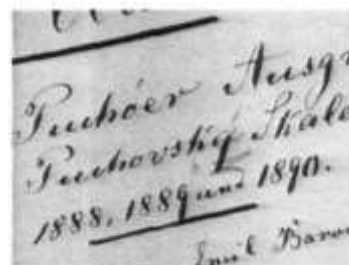 Puchóer Ausgr
Puchovský Skala
1888, 1889 und 1890.
Emil Baro